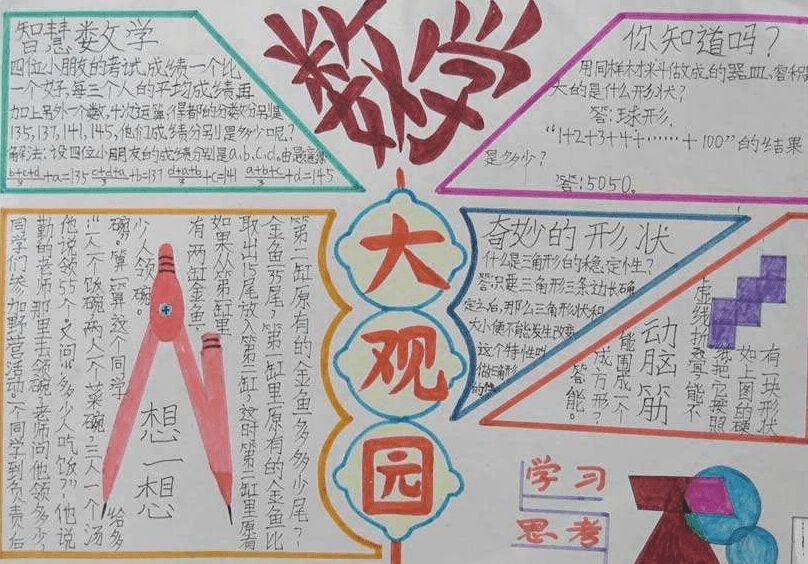 数学
大
观
园
智慧数学
四位小朋友的考试成绩一个比
一个好,每三个人的平均成绩再
加上另外一个数,4次运算,得都的分数分别是
135,137,141,145,他们成绩分别是多少呢?
解法:设四位小朋友的成绩分别是a,b,c,d.由题意得
b+c+d/3+a=135 c+d+a/3+b=137 d+a+b/3+c=141 a+b+c/3+d=145
你知道吗?
用同样材料做成的器皿,容积
大的是什么形状?
答:球形.
“1+2+3+4+……+100”的结果
是多少?
答:5050。
第一缸原有的金鱼多多少尾?
金鱼35尾,第一缸里原有的金鱼比
取出15尾放入第二缸,这时第二缸里原有
如果从第一缸里
有两缸金鱼,
想一想
少人领碗。
碗。”算一算这个同学给多
“一人一个饭碗,两人一个菜碗,三人一个汤
他说领55个。又问“多少人吃饭?”他说
勤的老师那里去领碗,老师问他领多少,
同学们参加野营活动。一个同学到负责后
奇妙的形状
什么是三角形的稳定性?
答:只要三角形三条边长确
定之后,那么三角形状和
大小便不能发生改变,
这个特性叫
做三角形
的
有一块形状
如上图的硬
纸把它按照
虚线折叠,能不
动脑筋
能围成一个
成方形?
答:能。
学习
思考